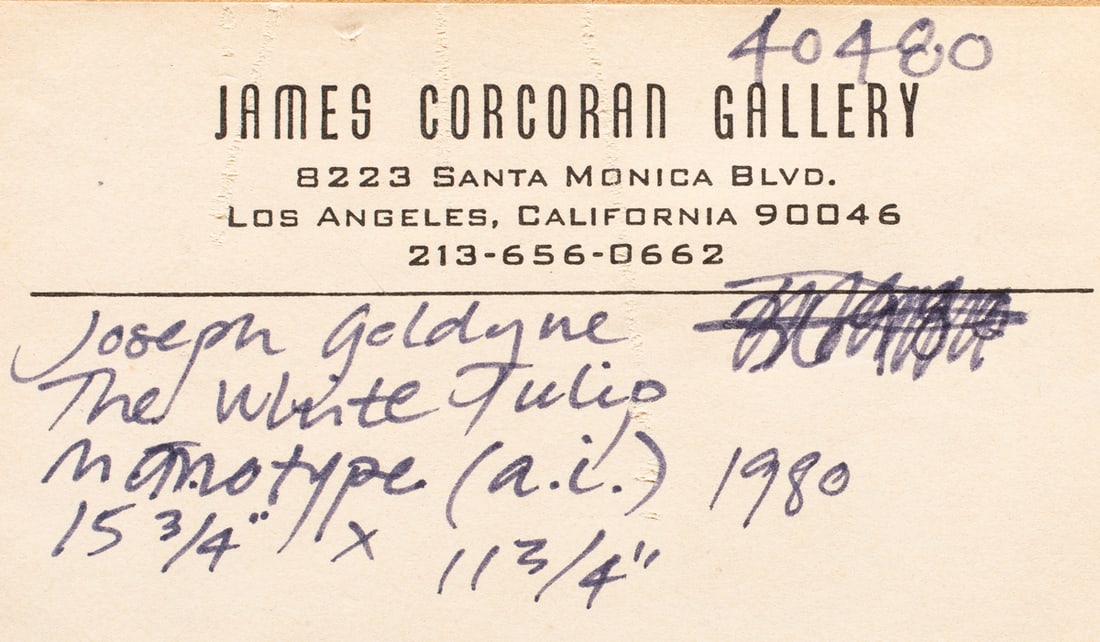 40480
JAMES CORCORAN GALLERY
8223 SANTA MONICA BLVD.
LOS ANGELES, CALIFORNIA 90046
213-656-0662
Joseph Goldyne
The White Tulip
Monotype (a.i.) 1980
15 3/4" x 11 3/4"